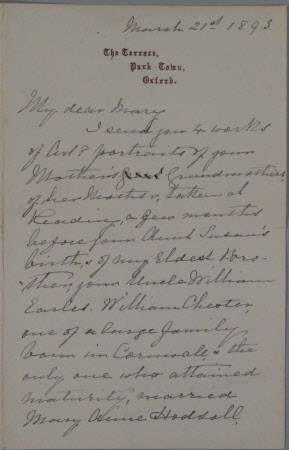 March 21st 1893
The Terrace,
Park Town,
Oxford.
My dear Mary
I send you 4 works
of Art? portraits of your
Mother's Grandmother
of her Mother, taken at
Reading, a few months
before your Aunt Susan's
birth, & of my Eldest Bro-
-ther, your Uncle William
Earles. William Chester,
one of a large family
born in Cornwall, & the
only one who attained
maturity, married
Mary Anne Hodsoll,